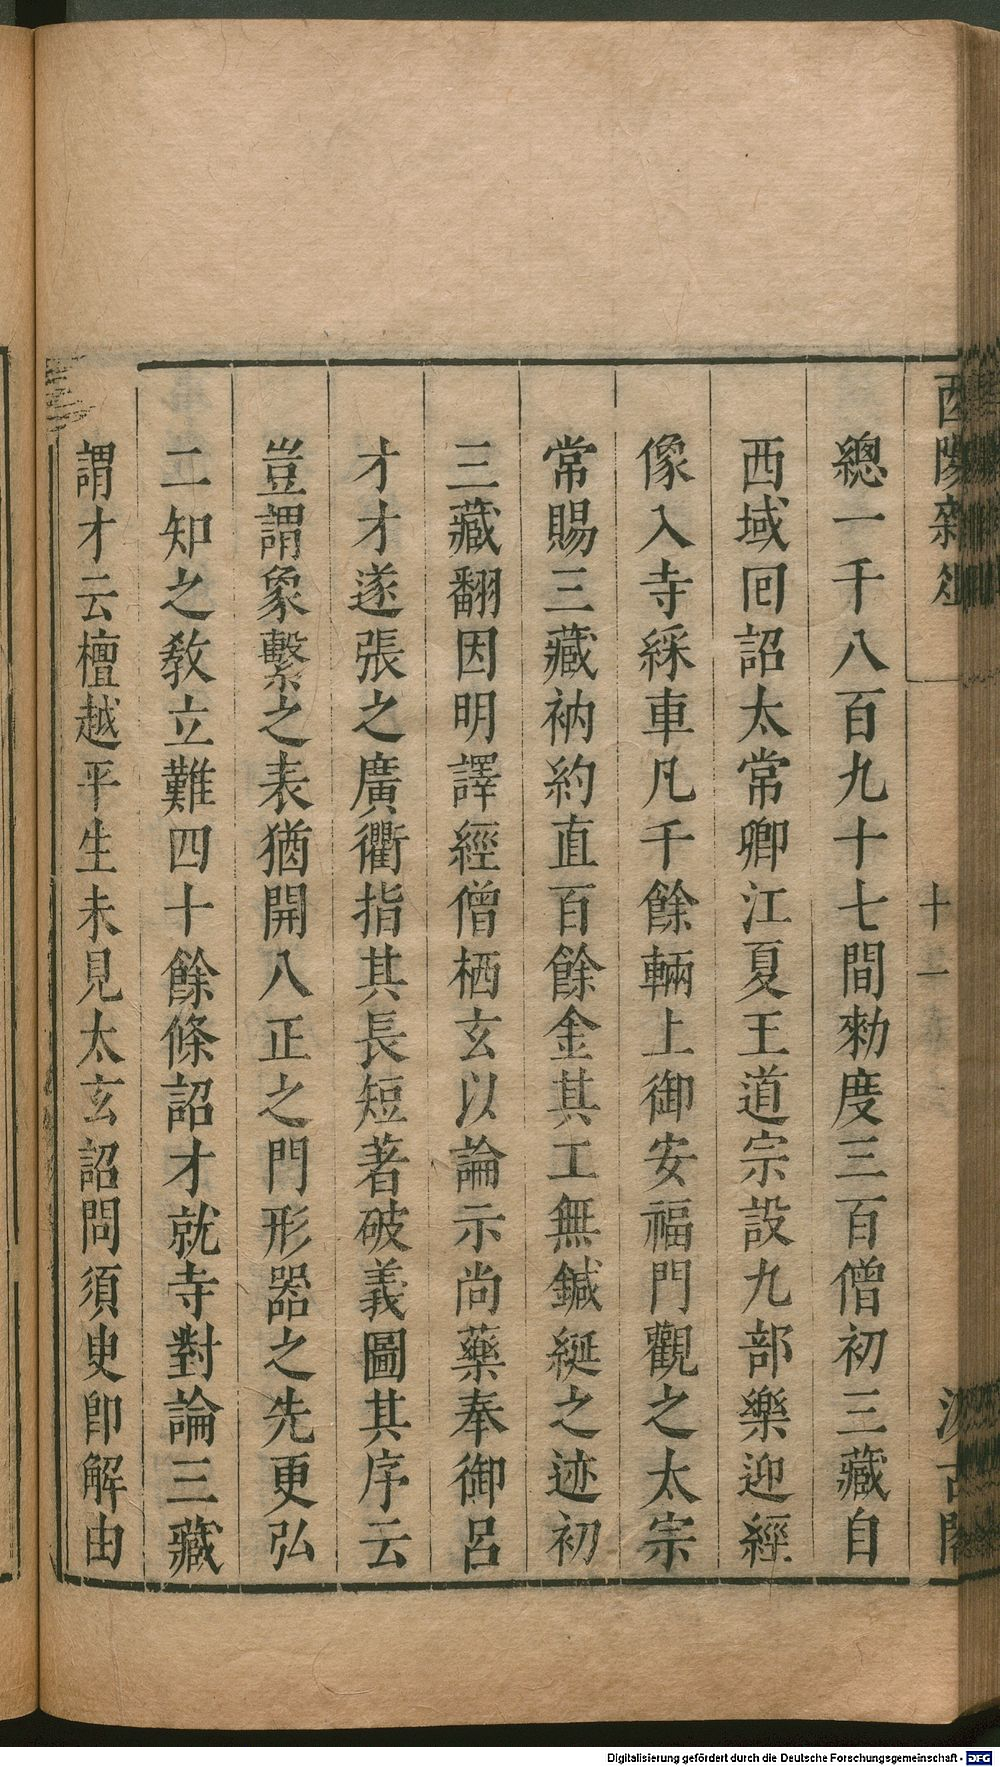 酉陽雜俎
十一
汲古閣
總一千八百九十七間勑度三百僧初三藏自
西域囘詔太常卿江夏王道宗設九部樂迎經
像入寺綵車凡千餘輛上御安福門觀之太宗
常賜三藏衲約直百餘金其工無鍼綖之迹初
三藏翻因明譯經僧栖玄以論示尚藥奉御呂
才才遂張之廣衢指其長短著破義圖其序云
豈謂象繫之表猶開八正之門形器之先更弘
二知之教立難四十餘條詔才就寺對論三藏
謂才云檀越平生未見太玄詔問須臾卽解由
Digitalisierung gefördert durch die Deutsche Forschungsgemeinschaft - DFG